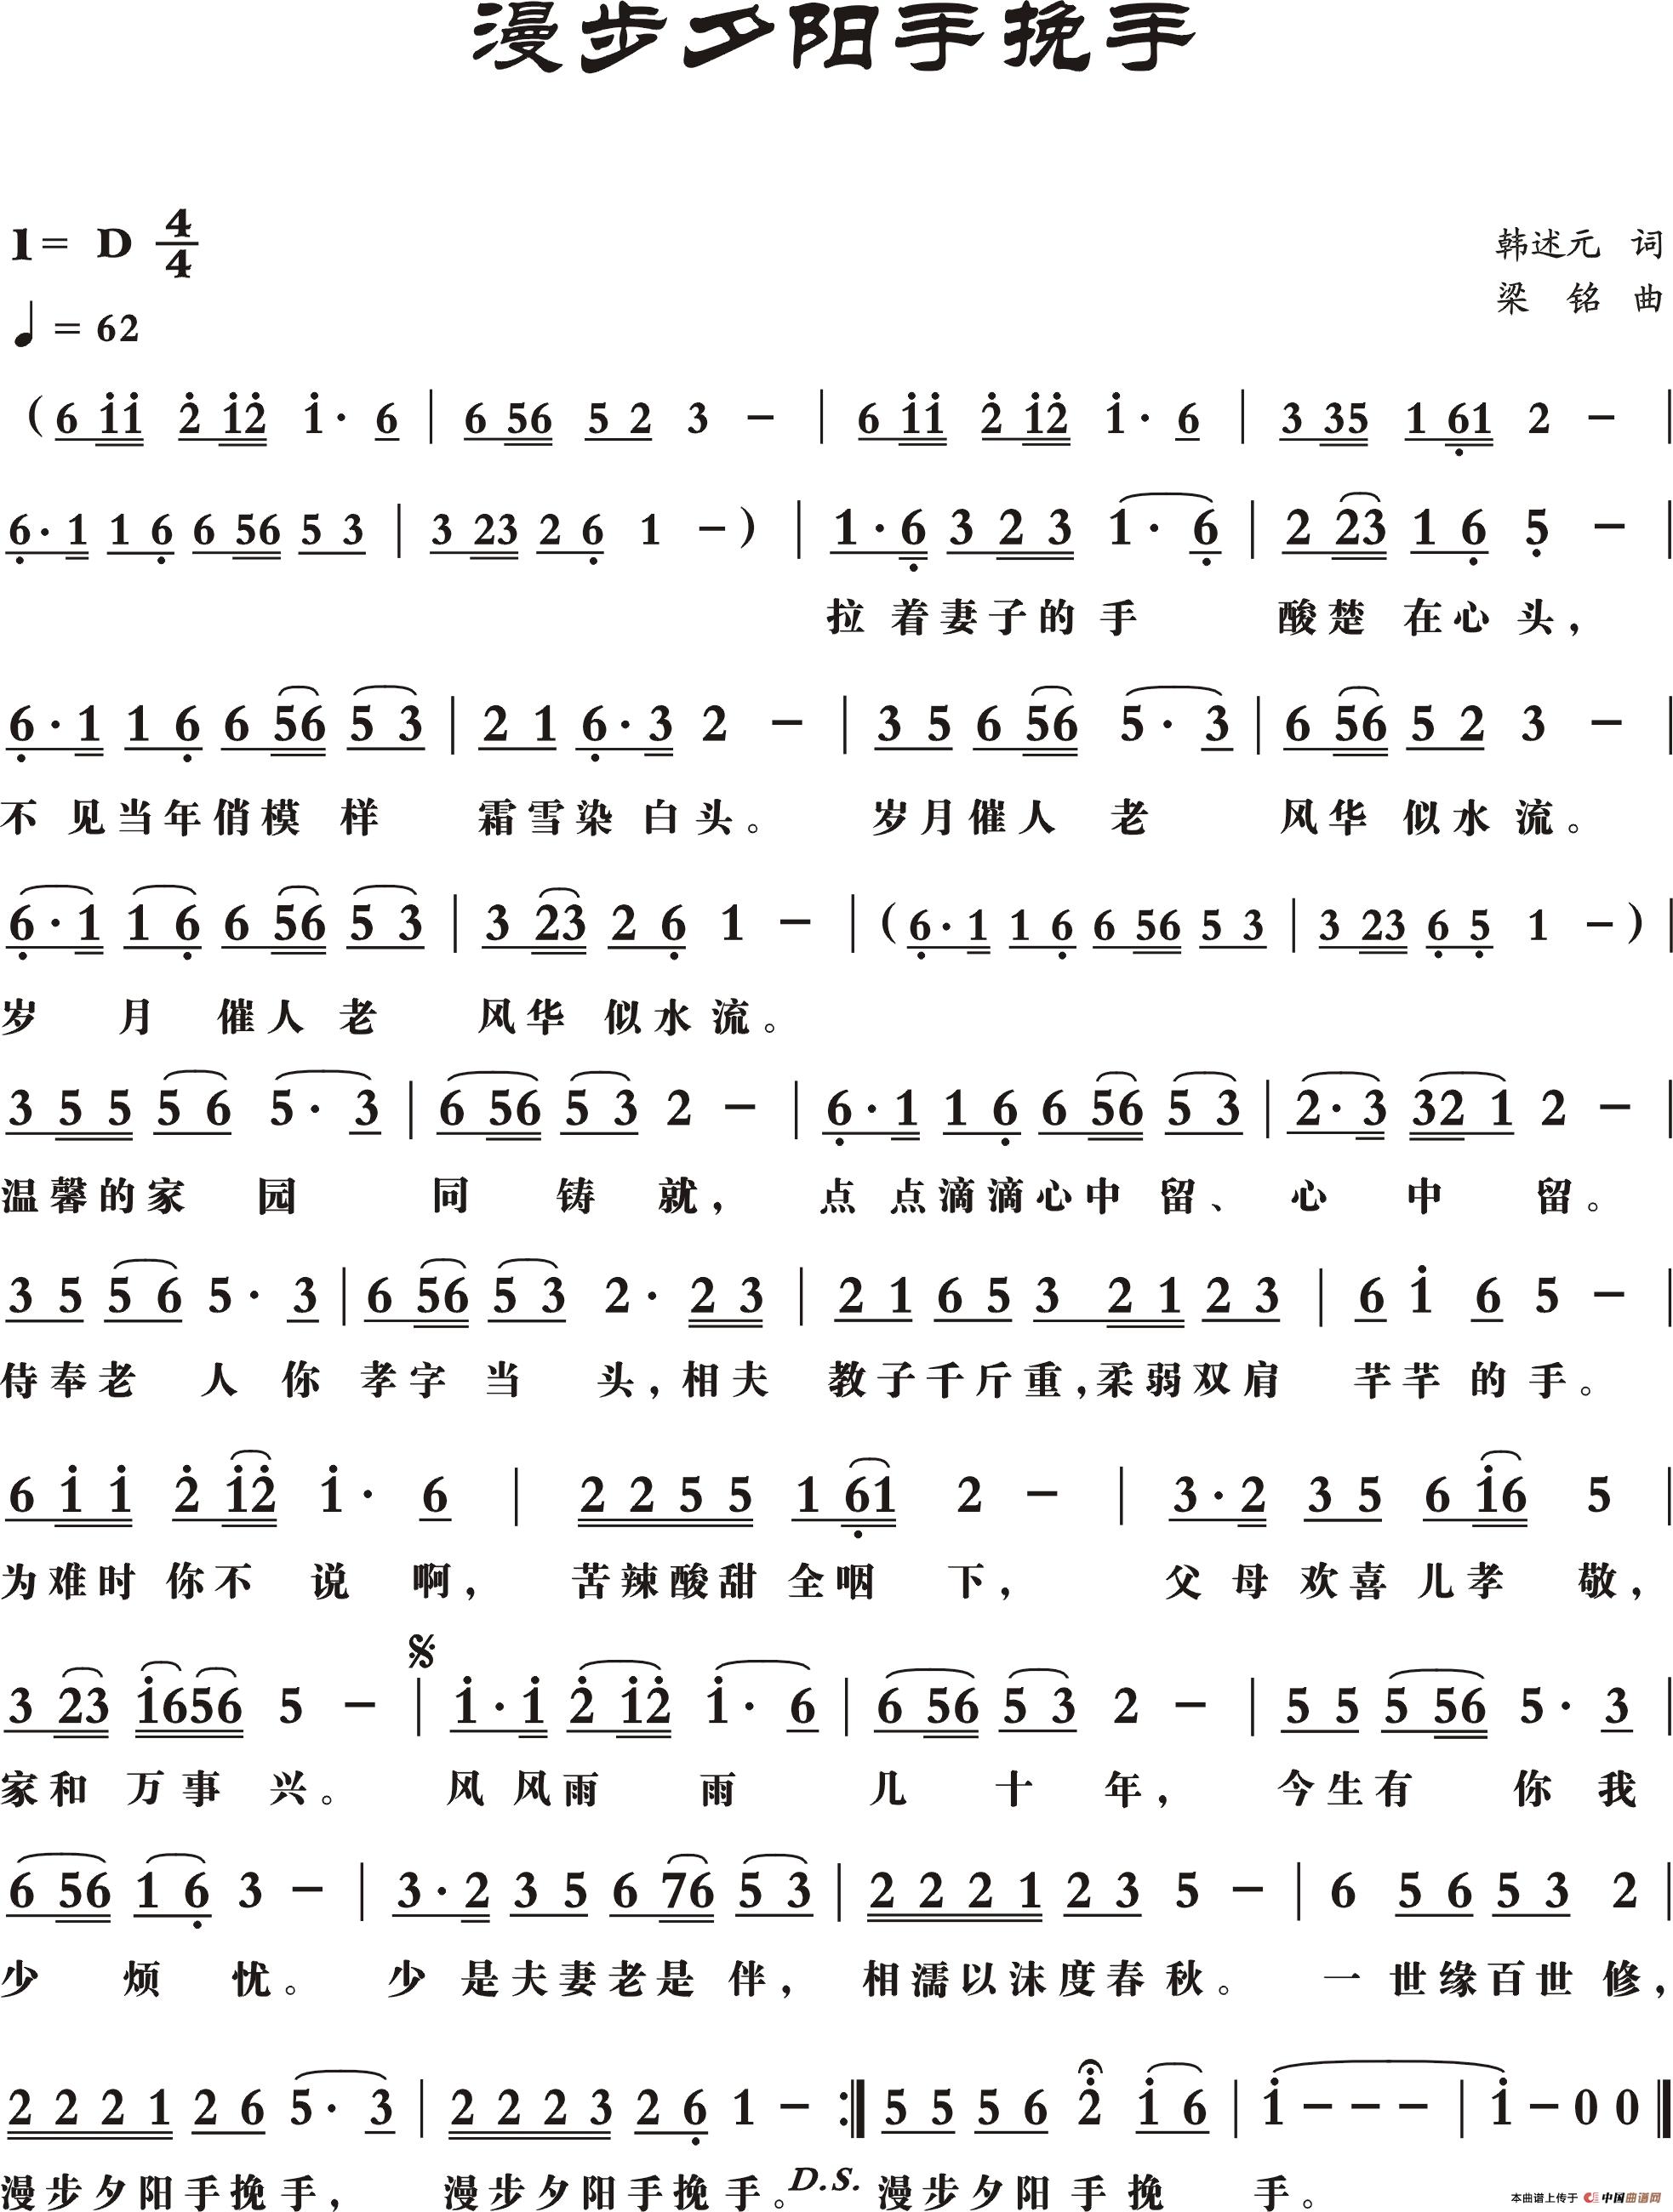 漫步夕阳手挽手
1= D 4/4
韩述元 词
♩= 62
梁 铭 曲
( 6 i i 2̇ i 2̇ i · 6 | 6 56 5 2 3 – | 6 i i 2̇ i 2̇ i · 6 | 3 35 1 6̣1 2 – |
6̣ · 1 1 6̣ 6 56 5 3 | 3 23 2 6̣ 1 – ) | 1 · 6̣ 3 2 3 1 · 6̣ | 2 23 1 6̣ 5̣ – |
拉 着妻子的 手 酸楚 在心 头,
6̣ · 1 1 6̣ 6 56 5 3 | 2 1 6̣ · 3 2 – | 3 5 6 56 5 · 3 | 6 56 5 2 3 – |
不 见当年俏模 样 霜雪染 白头。 岁月催人 老 风华 似水 流。
6̣ · 1 1 6̣ 6 56 5 3 | 3 23 2 6̣ 1 – | ( 6̣ · 1 1 6̣ 6 56 5 3 | 3 23 6̣ 5̣ 1 – ) |
岁 月 催人 老 风华 似水 流。
3 5 5 5 6 5 · 3 | 6 56 5 3 2 – | 6̣ · 1 1 6̣ 6 56 5 3 | 2 · 3 32 1 2 – |
温馨的家 园 同 铸 就, 点 点滴滴心中 留、 心 中 留。
3 5 5 6 5 · 3 | 6 56 5 3 2 · 2 3 | 2 1 6 5 3 2 1 2 3 | 6 i 6 5 – |
侍奉老 人 你 孝字 当 头,相夫 教子千斤重,柔弱双肩 芊芊 的 手。
6 i i 2̇ i 2̇ i · 6 | 2 2 5 5 1 6̣1 2 – | 3 · 2 3 5 6 i6 5 |
为难时 你不 说 啊, 苦辣酸甜 全咽 下, 父 母 欢喜 儿孝 敬,
3 23 i656 5 – | i · i 2̇ i 2̇ i · 6 | 6 56 5 3 2 – | 5 5 5 56 5 · 3 |
家和 万事 兴。 风 风雨 雨 几 十 年, 今生有 你 我
6 56 1 6̣ 3 – | 3 · 2 3 5 6 76 5 3 | 2 2 2 1 2 3 5 – | 6 5 6 5 3 2 |
少 烦 忧。 少 是夫妻老是 伴, 相濡以沫度春 秋。 一 世缘百世 修,
2 2 2 1 2 6 5 · 3 | 2 2 2 3 2 6̣ 1 – :‖ 5 5 5 6 2̇ i 6 | i – – – | i – 0 0 ‖
漫步夕阳手挽手, 漫步夕阳手挽手。 D.S. 漫步夕阳 手 挽 手。
本曲谱上传于 中国曲谱网